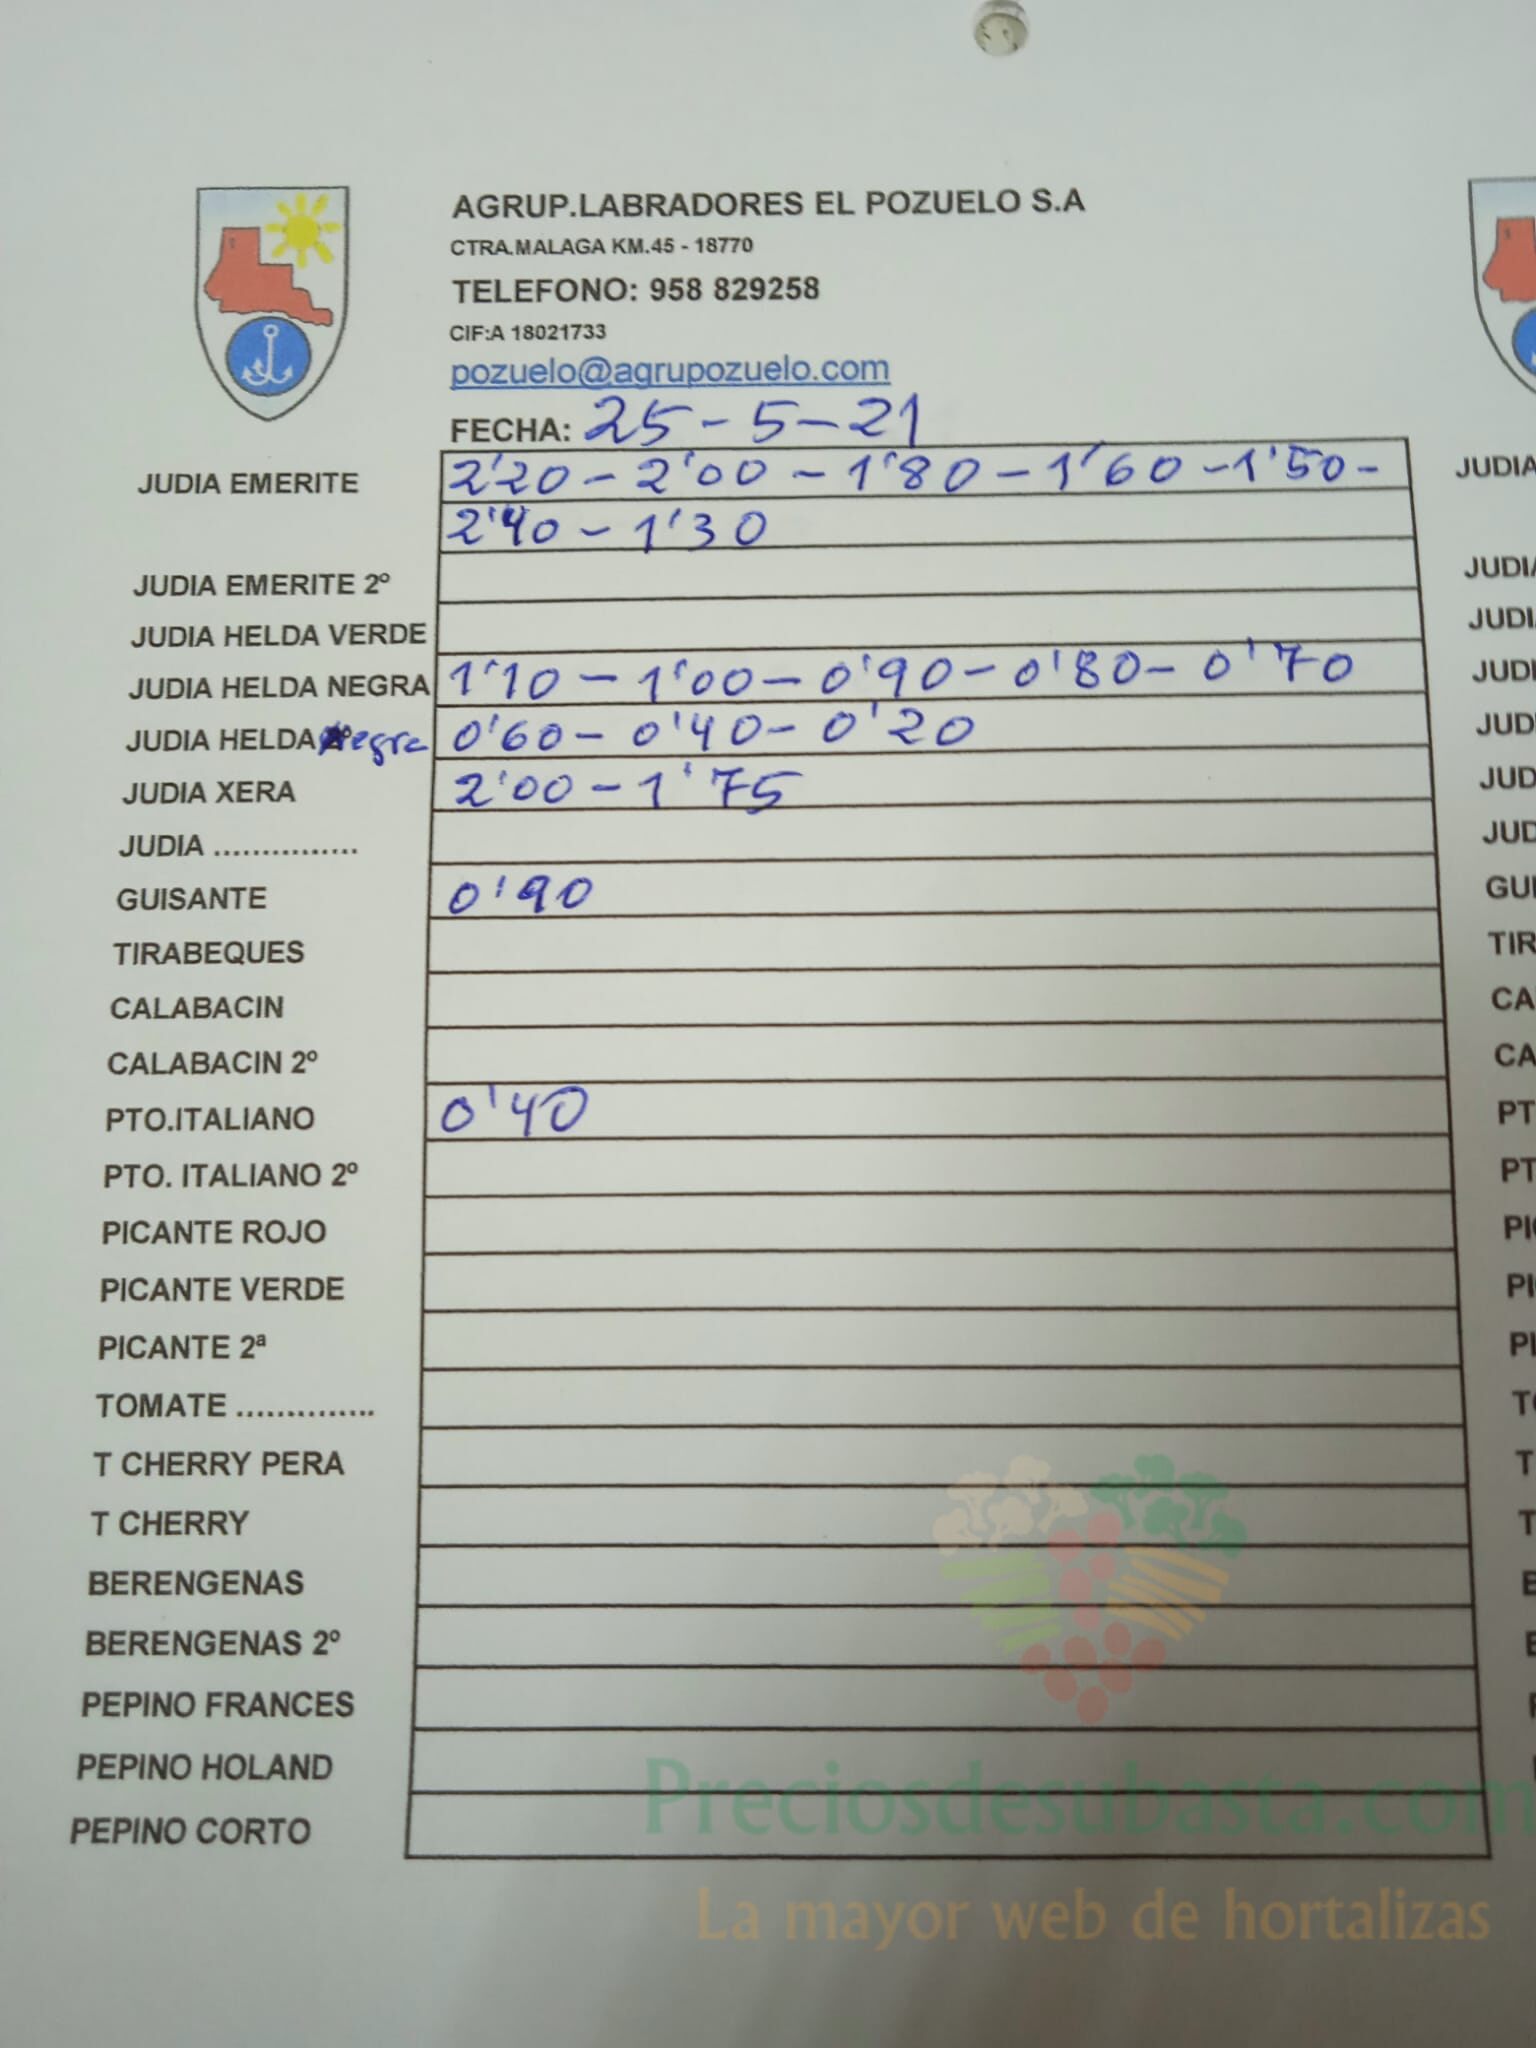 AGRUP.LABRADORES EL POZUELO S.A
CTRA.MALAGA KM.45 - 18770
TELEFONO: 958 829258
CIF:A 18021733
pozuelo@agrupozuelo.com
FECHA: 25-5-21
JUDIA EMERITE 2'20 - 2'00 - 1'80 - 1'60 - 1'50 -
2'40 - 1'30
JUDIA EMERITE 2º
JUDIA HELDA VERDE
JUDIA HELDA NEGRA 1'10 - 1'00 - 0'90 - 0'80 - 0'70
JUDIA HELDA Negra 0'60 - 0'40 - 0'20
JUDIA XERA 2'00 - 1'75
JUDIA ...............
GUISANTE 0'90
TIRABEQUES
CALABACIN
CALABACIN 2º
PTO.ITALIANO 0'40
PTO. ITALIANO 2º
PICANTE ROJO
PICANTE VERDE
PICANTE 2ª
TOMATE ..............
T CHERRY PERA
T CHERRY
BERENGENAS
BERENGENAS 2º
PEPINO FRANCES
PEPINO HOLAND
PEPINO CORTO
Preciosdesubasta.com
La mayor web de hortalizas